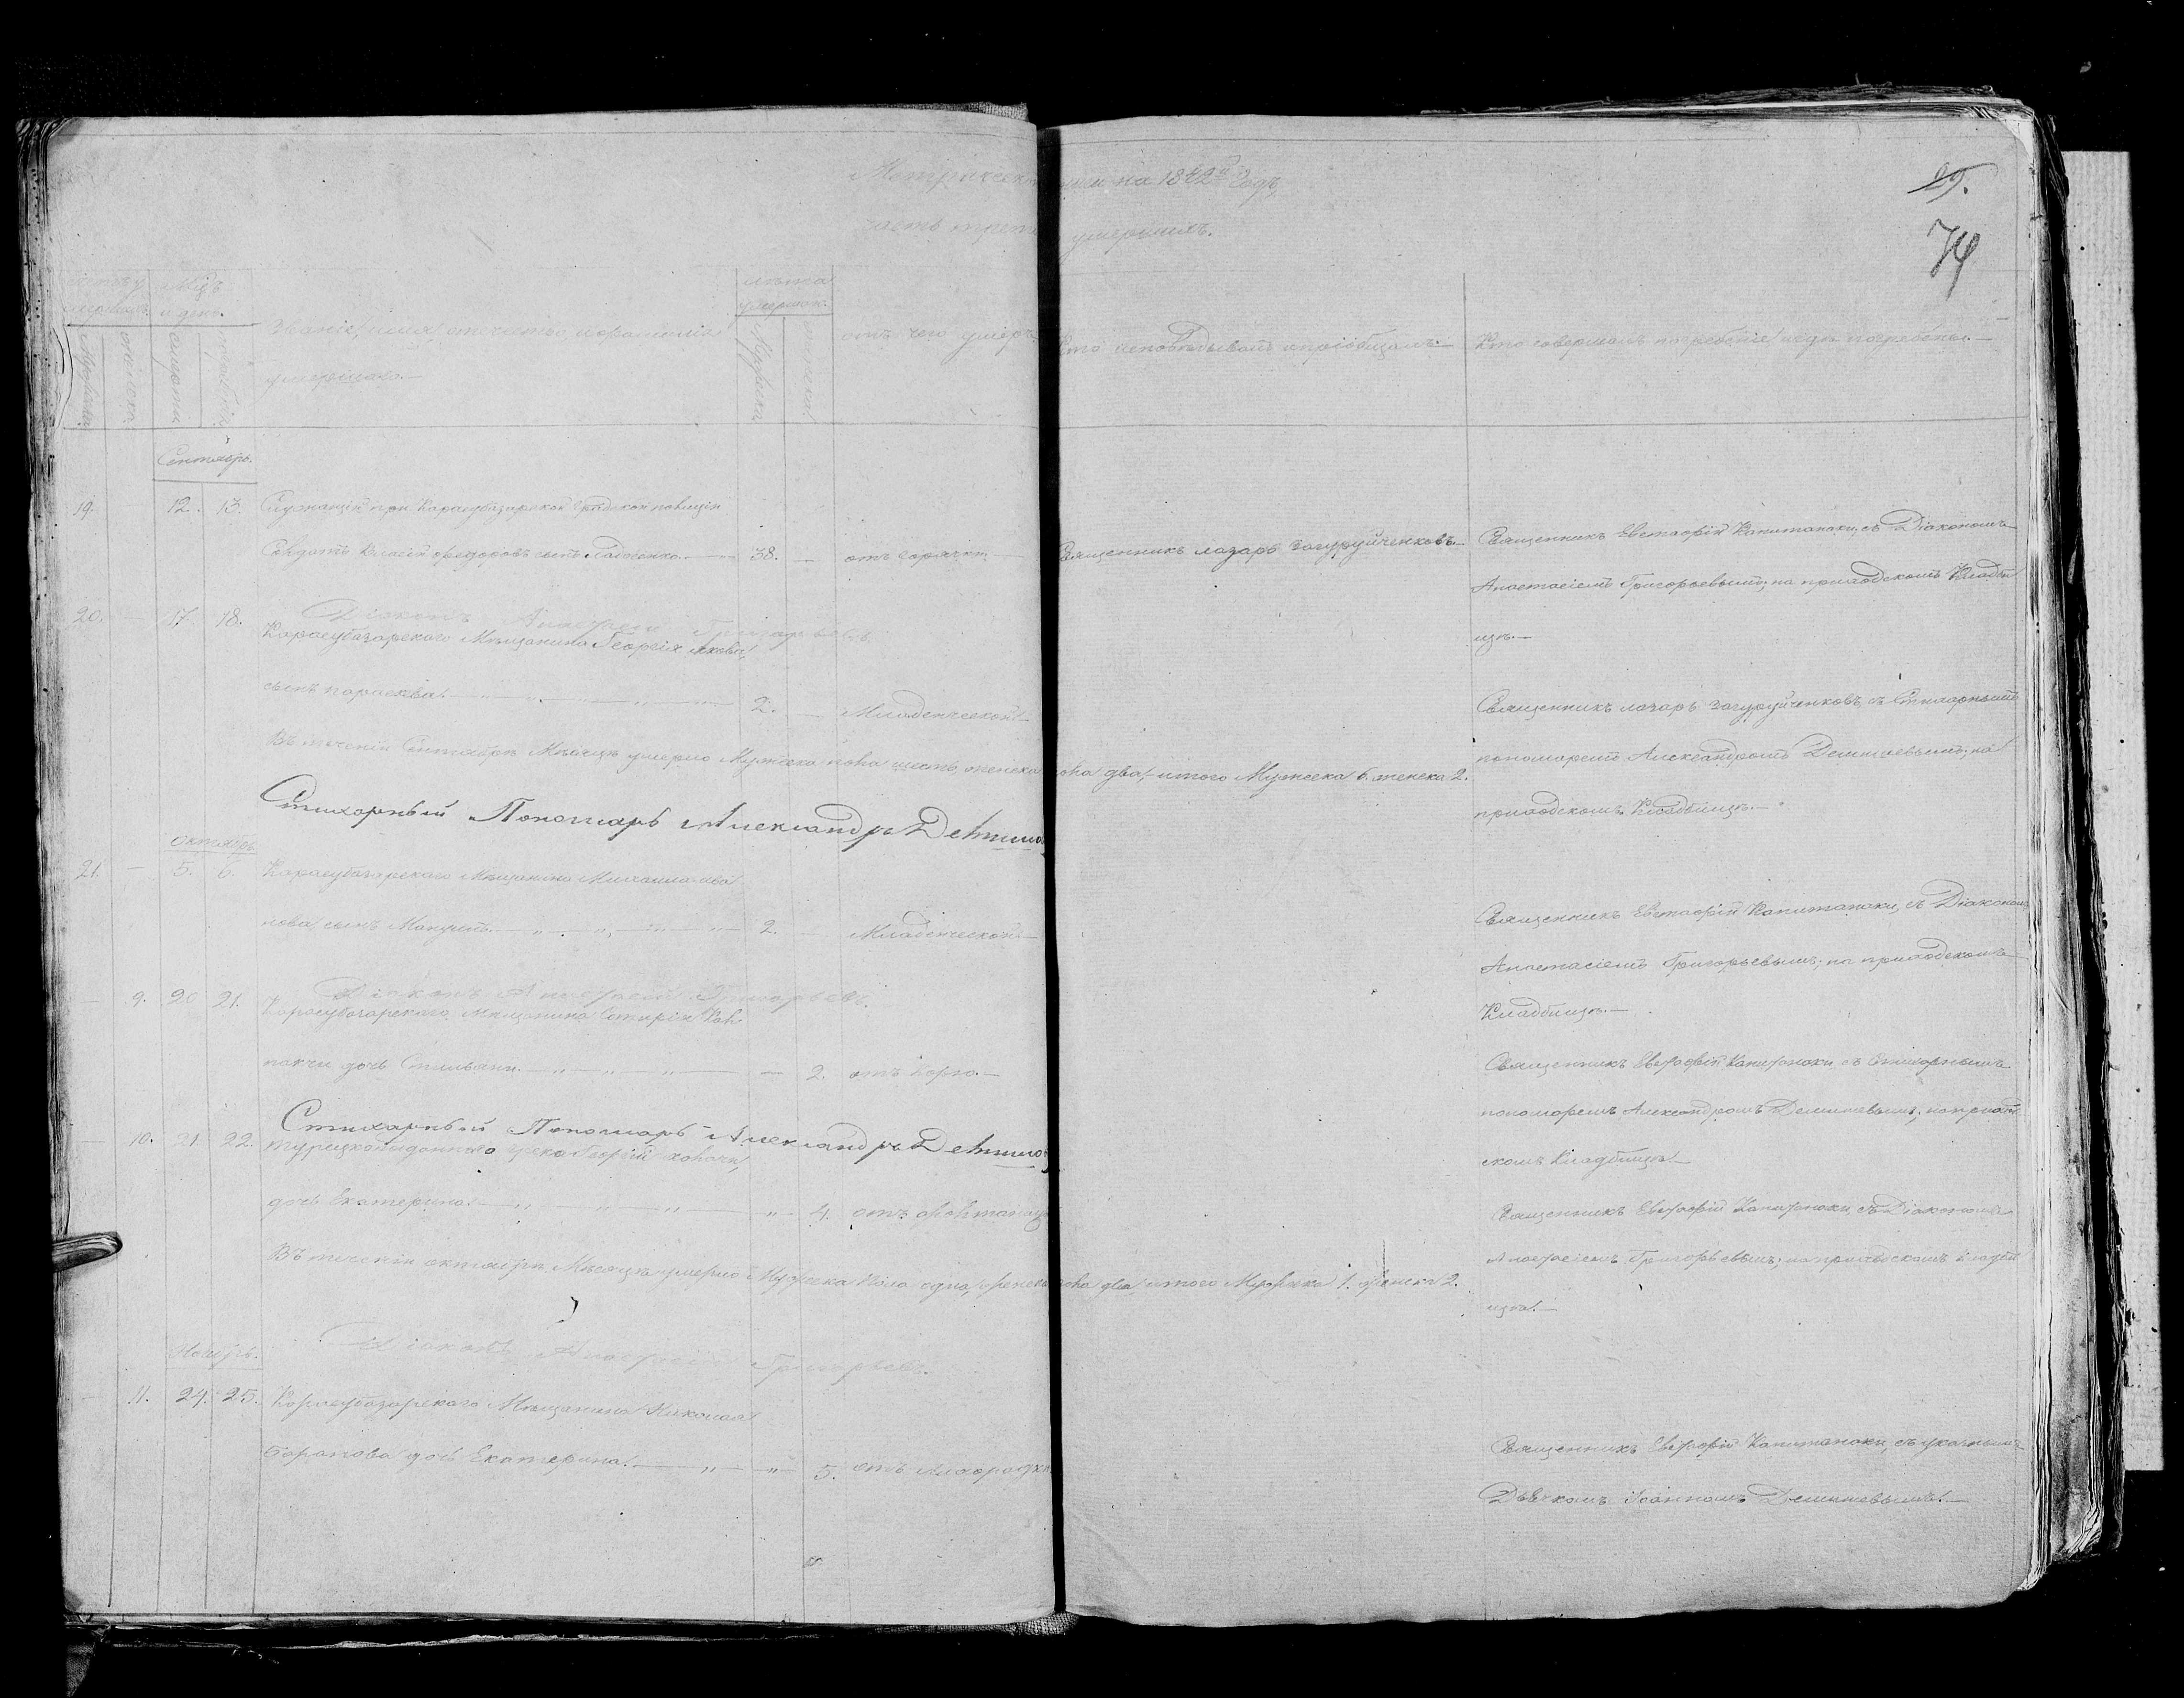 Метрической книги на 1842й Годъ,
часть третья умершихъ.
29.
74
Счетъ умершихъ.
Мѣц. и день.
Мужска.
Женска.
смерти
погребенія
Званіе, имя, отчество, и фамилія
умершаго.—
лѣта умершаго.
Мужска
женска
отъ чего умеръ
Кто исповѣдывалъ и пріобщалъ.—
Кто совершалъ погребеніе и гдѣ погребены.—
Сентябрь.
19. — 12. 13. Служащій при Карасубазарской Градской полиціи
Солдатъ Василій Федоровъ сынъ — 38. — отъ горячки.—
Священникъ лазарь Загуруйченковъ.—
Священникъ Евстафій Капитанаки, съ Діакономъ
Анастасіемъ Григорьевымъ; на приходскомъ Кладби
щѣ.—
Діаконъ Анастасій Григорьевъ.
20. — 17. 18. Карасубазарского Мѣщанина Георгія
сынъ параскева — 2. — Младенческой—
Священникъ лазарь Загуруйченковъ, съ Стихарнымъ
пономаремъ Александромъ Демишевымъ, на
приходскомъ Кладбищѣ.—
Въ теченіи Сентября Мѣсяцѣ умерло Мужеска пола шесть, женска пола два, итого Мужеска 6. женска 2.
Стихарный Пономарь Александръ
октябрь
21. — 5. 6. Карасубазарского Мѣщанина Михаила ива
нова сынъ — 2. — Младенческой—
Священникъ Евстафій Капитанаки, съ Діакономъ
Анастасіемъ Григорьевымъ; на приходскомъ
Кладбищѣ.—
Діаконъ Анастасій Григорьевъ.
— 9. 20 21. Карасубазарского Мѣщанина Сотирія
дочь — 2. отъ Корю.—
Священникъ Евстафій Капитанаки съ Стихарнымъ
пономаремъ Александромъ Демишевымъ, на приход
скомъ Кладбищѣ—
Стихарный Пономарь Александръ
— 10. 21. 22. турецкоподанного грека Георгій
дочь Екатерина — 4. отъ
Священникъ Евстафій Капитанаки, съ Діакономъ
Анастасіемъ Григорьевымъ, на приходскомъ кладби
щѣ.—
Въ теченіи октября Мѣсяцѣ умерло Мужска пола одна, женска пола два, итого Мужска 1. женска 2.
Діаконъ Анастасій Григорьевъ.
Ноябрь.
— 11. 24. 25. Карасубазарского Мѣщанина Николая
Баранова дочь Екатерина — 5. отъ лихорадки
Священникъ Евстафій Капитанаки, съ указнымъ
Дьячкомъ Іоанномъ Демишевымъ.—